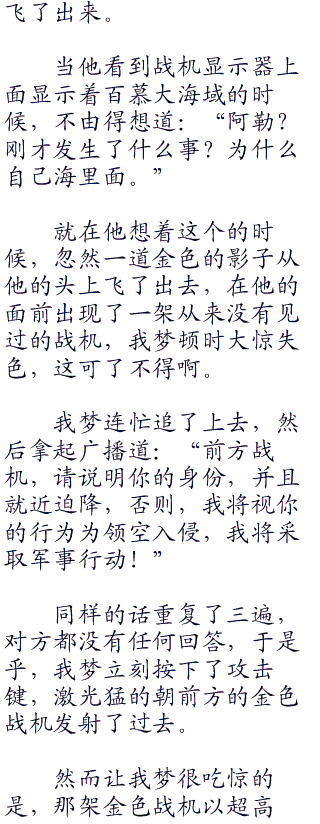 飞了出来。
当他看到战机显示器上
面显示着百慕大海域的时
候，不由得想道：“阿勒？
刚才发生了什么事？为什么
自己海里面。”
就在他想着这个的时
候，忽然一道金色的影子从
他的头上飞了出去，在他的
面前出现了一架从来没有见
过的战机，我梦顿时大惊失
色，这可了不得啊。
我梦连忙追了上去，然
后拿起广播道：“前方战
机，请说明你的身份，并且
就近迫降，否则，我将视你
的行为为领空入侵，我将采
取军事行动！”
同样的话重复了三遍，
对方都没有任何回答，于是
乎，我梦立刻按下了攻击
键，激光猛的朝前方的金色
战机发射了过去。
然而让我梦很吃惊的
是，那架金色战机以超高